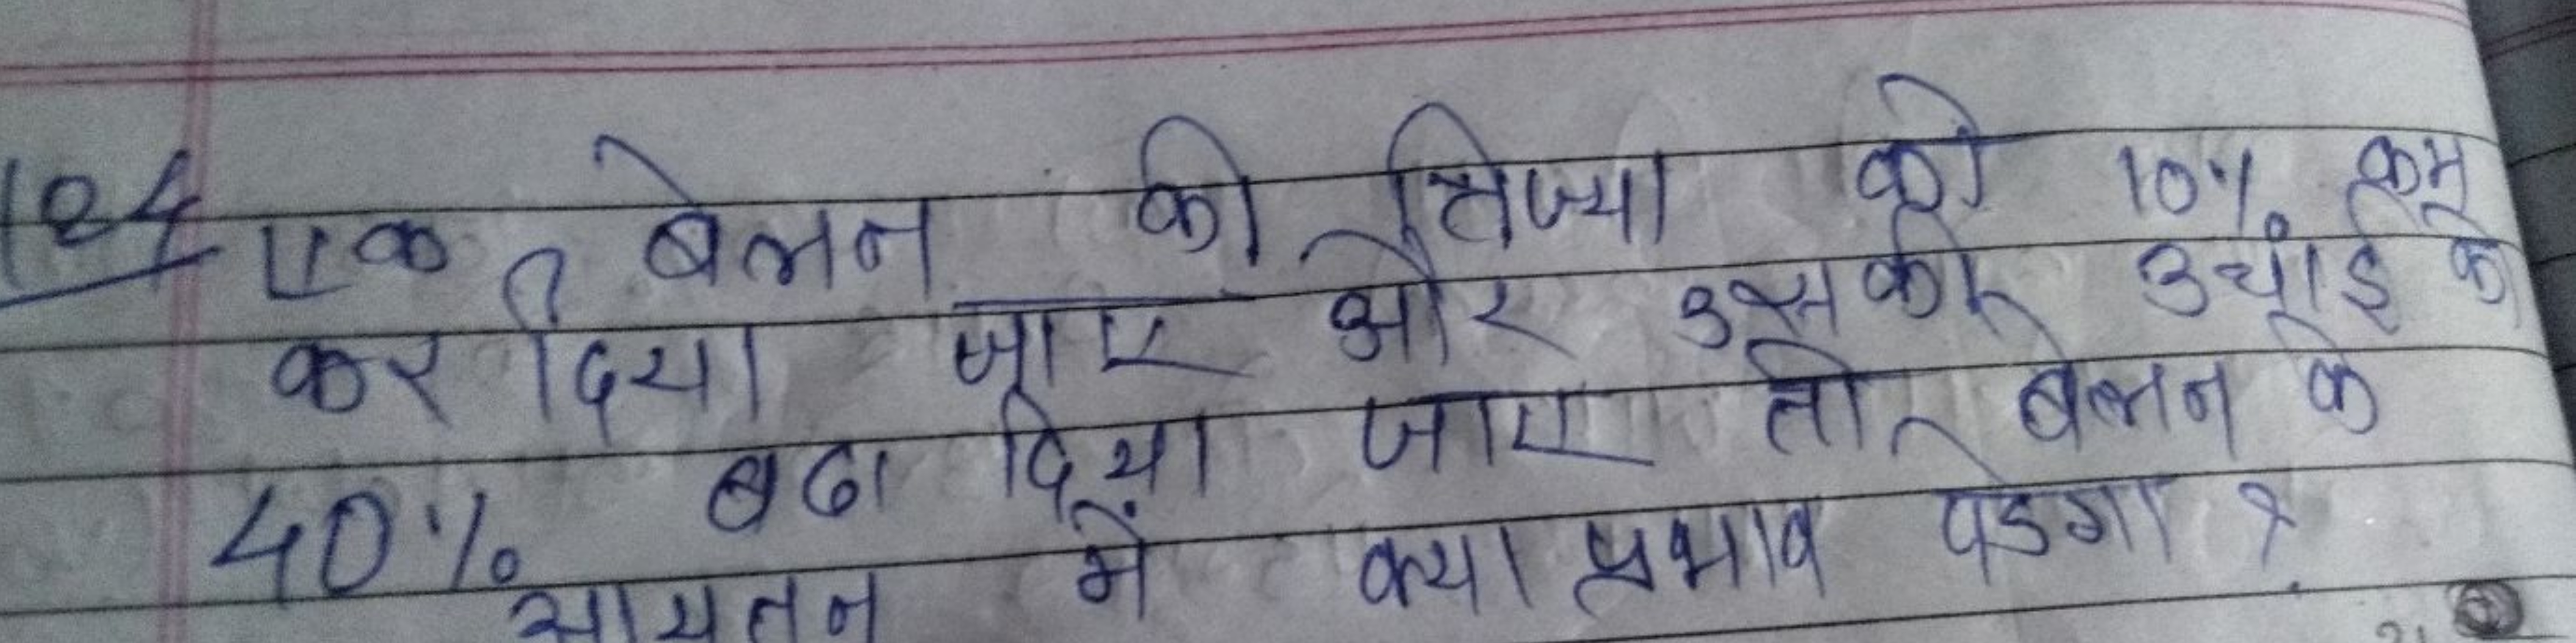 124 एक बेलन की त्रिज्या को 10% कम
कर दिया जाए और उसकी उचाई को
40% बढा दिया जाए तो बेलन के
आयतन में क्या प्रभाव पडेगा ?